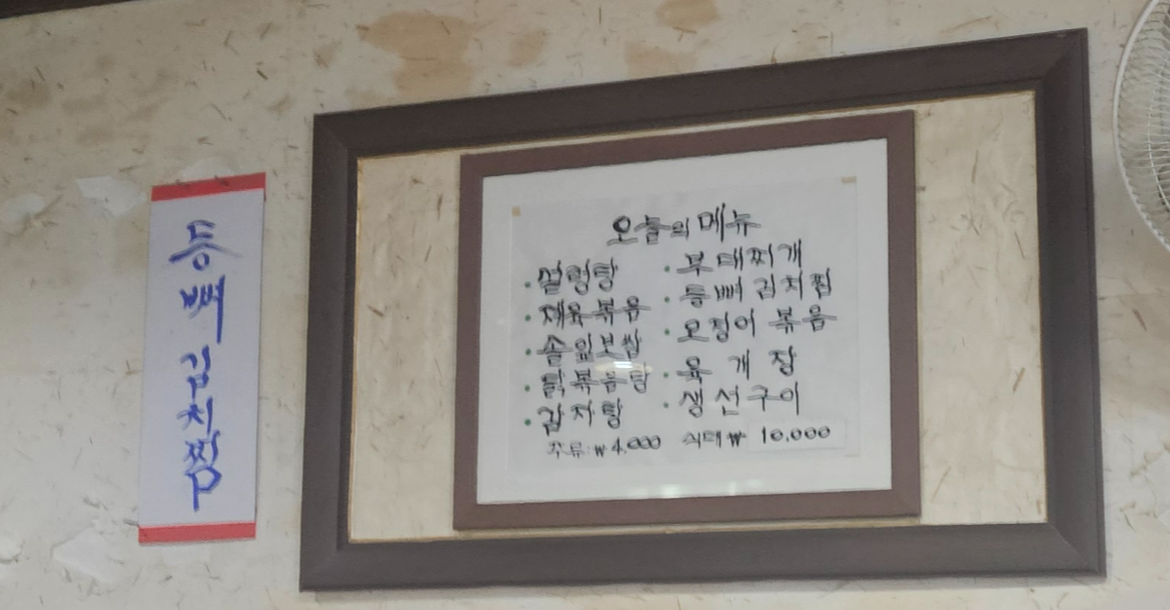 등뼈 김치찜
오늘의 메뉴
· 설렁탕
· 제육볶음
· 솔잎보쌈
· 닭볶음탕
· 감자탕
· 부대찌개
· 등뼈 김치찜
· 오징어 볶음
· 육개장
· 생선구이
주류: ₩4,000 식대 ₩ 10,000